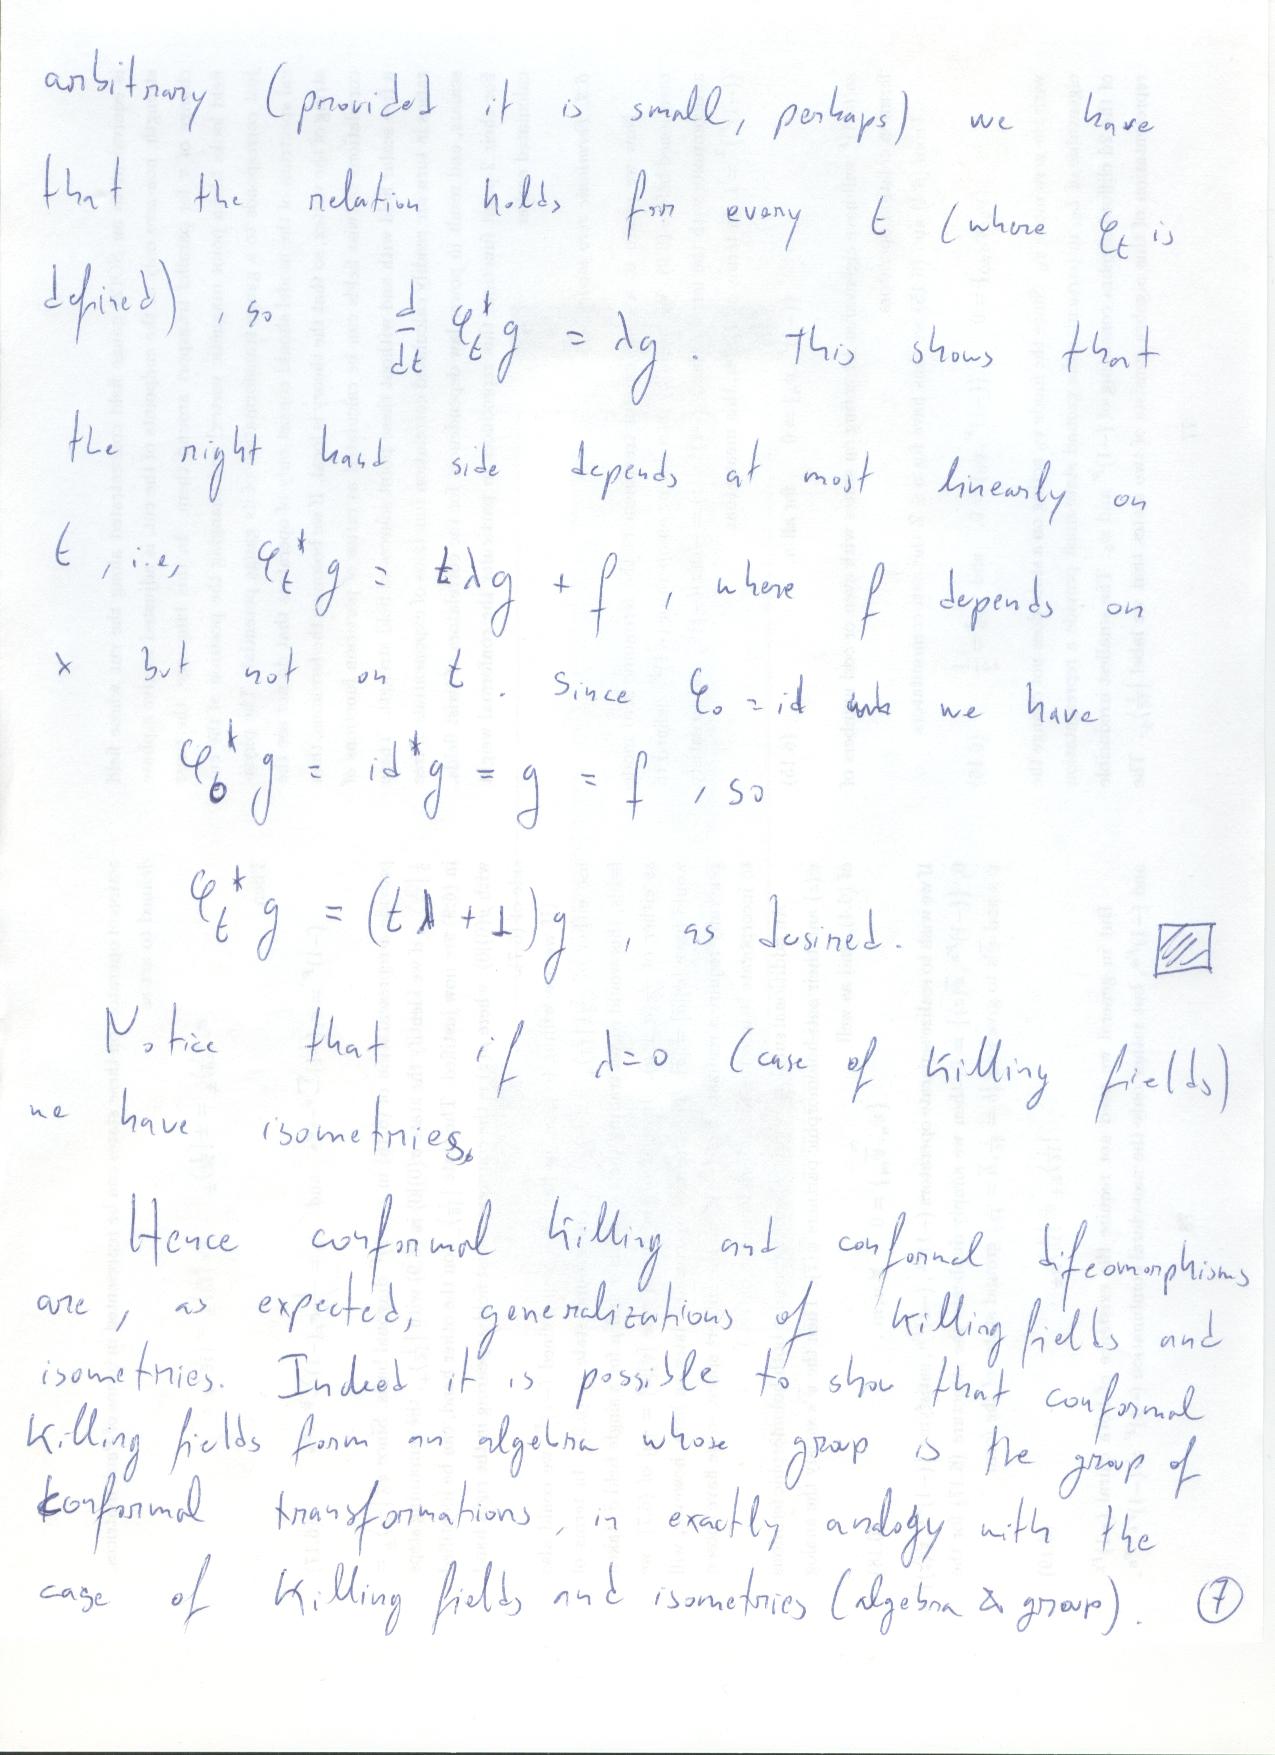 arbitrary (provided it is small, perhaps) we have
that the relation holds for every t (where φ_t is
defined), so d/dt φ_t^* g = λg. This shows that
the right hand side depends at most linearly on
t, i.e, φ_t^* g = tλg + f, where f depends on
x but not on t. Since φ_0 = id we have
φ_0^* g = id^* g = g = f, so
φ_t^* g = (tλ + 1)g, as desired.
Notice that if λ=0 (case of Killing fields)
we have isometries.
Hence conformal Killing and conformal difeomorphisms
are, as expected, generalizations of Killing fields and
isometries. Indeed it is possible to show that conformal
Killing fields form an algebra whose group is the group of
conformal transformations, in exactly analogy with the
case of Killing fields and isometries (algebra & group).
7